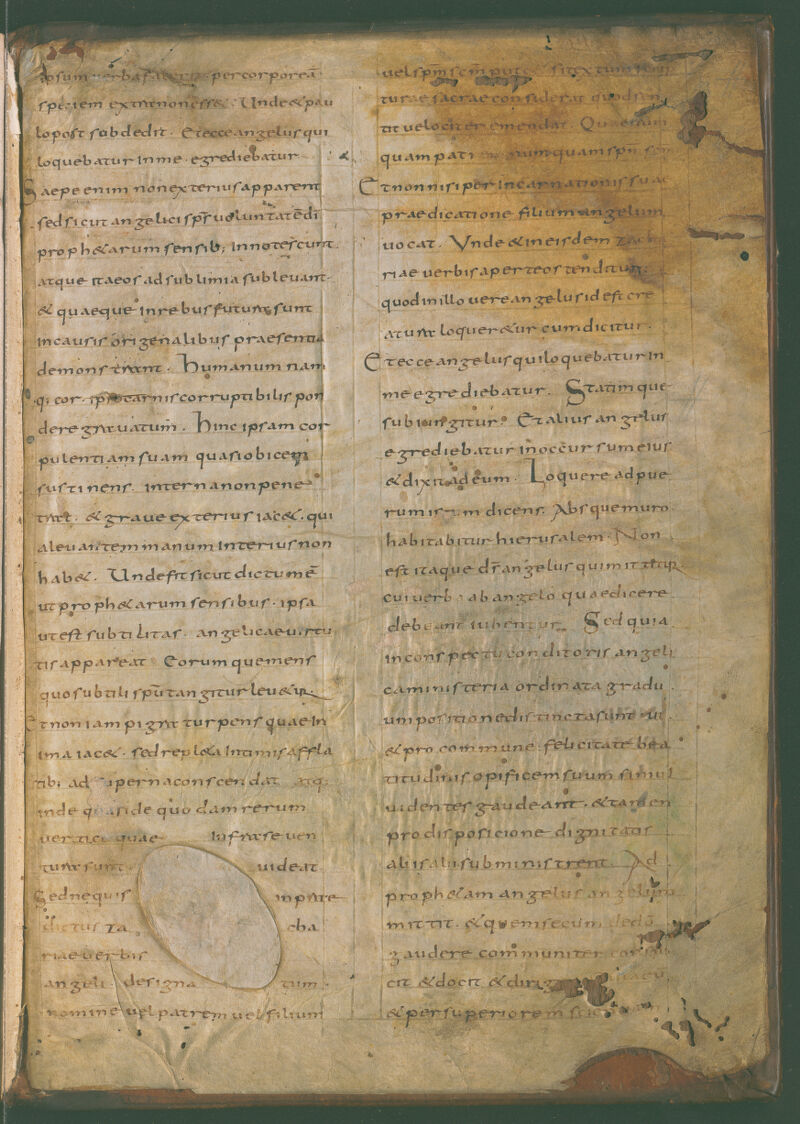 ipsum verba per corporeā
speciem extrinon esse. Unde & pau
lo post subdedit. Et ecce angelus qui
loquebatur in me. egrediebatur
Saepe enim non exterius apparent
sed sicut angelici sp̄s voluntatē dī
proph&arum sensib; innotescunt
atque ita eos ad sublimia sublevant.
& quaeque in rebus futura sunt
in causis originalibus praesentia
demonstrant. Humanum nam
q; cor. ipso carnis corruptibilis pon
dere gravatum. hinc ipsam cor
pulentiam suam quasi obicem
sustinens. interna non pene
trat. & grave exterius iac&. qui
a levantem manum interius non
hab&. Unde fit sicut dictum ē
ut proph&arum sensibus. ipsa
ut est subtilitas. angelicae virtu
tis appareat Eorum que mens
quo subtili spū tangitur lev&ur
Et non iam pigra turpens quae in
ima iac&. sed repleta intimis affla
tib; ad superna conscendat atq;
inde quasi de quodam rerum
vertice quae infra se ven
tura sunt videat.
Sed nequis in prae
dictus za cha
riae verbis
angeli designa tum
nomine vel patrem vel filium
vel sp̄m sc̄m
turae sacrae considerat quod sen
tit velociter emendat. Quae enim
quam pat numquam sp̄m
Et non nisi per incarnationis suae
praedicatione filium angelum
vocat. Unde & in eisdem zacha
riae verbis aperte ostenditur.
quod in illo vere angelus id est cre
atura loquer&ur cum dicitur.
Et ecce angelus qui loquebatur in
me egrediebatur. Statim que
subiungitur. Et alius angelus
egrediebatur in occursum eius
& dixit ad eum. Loquere ad pue
rum istum dicens. Absque muro
habitabitur hierusalem. Non
est itaque d̄s angelus qui mittitur
cui verba ab angelo quae dicere
debeant iubentur. Sed quia
in conspectu conditoris angeli
ca ministeria ordinata gradu
um positione distincta sunt ut
& pro commune felicitate bea
titudinis opificem suum simul
videntes gaudeant. & tamen
pro disposicione dignitatis
alii aliis subministrent. Ad
proph&am angelus angelum
mittit. & quem secum deo
gaudere communiter
cit & doc& & dirig
& per superiorem